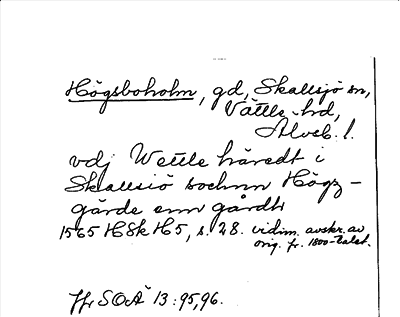 Högsboholm, gd, Skallsjö sn,
Vättle hd,
Älvsb. l.
vdj Wettle häredt i
Skallsiö sochnn Högz-
gärde enn gårdh
1565 HSk H5, s. 28. vidim. avskr. av
orig. fr. 1800-talet.
Jfr SOÄ 13:95,96.